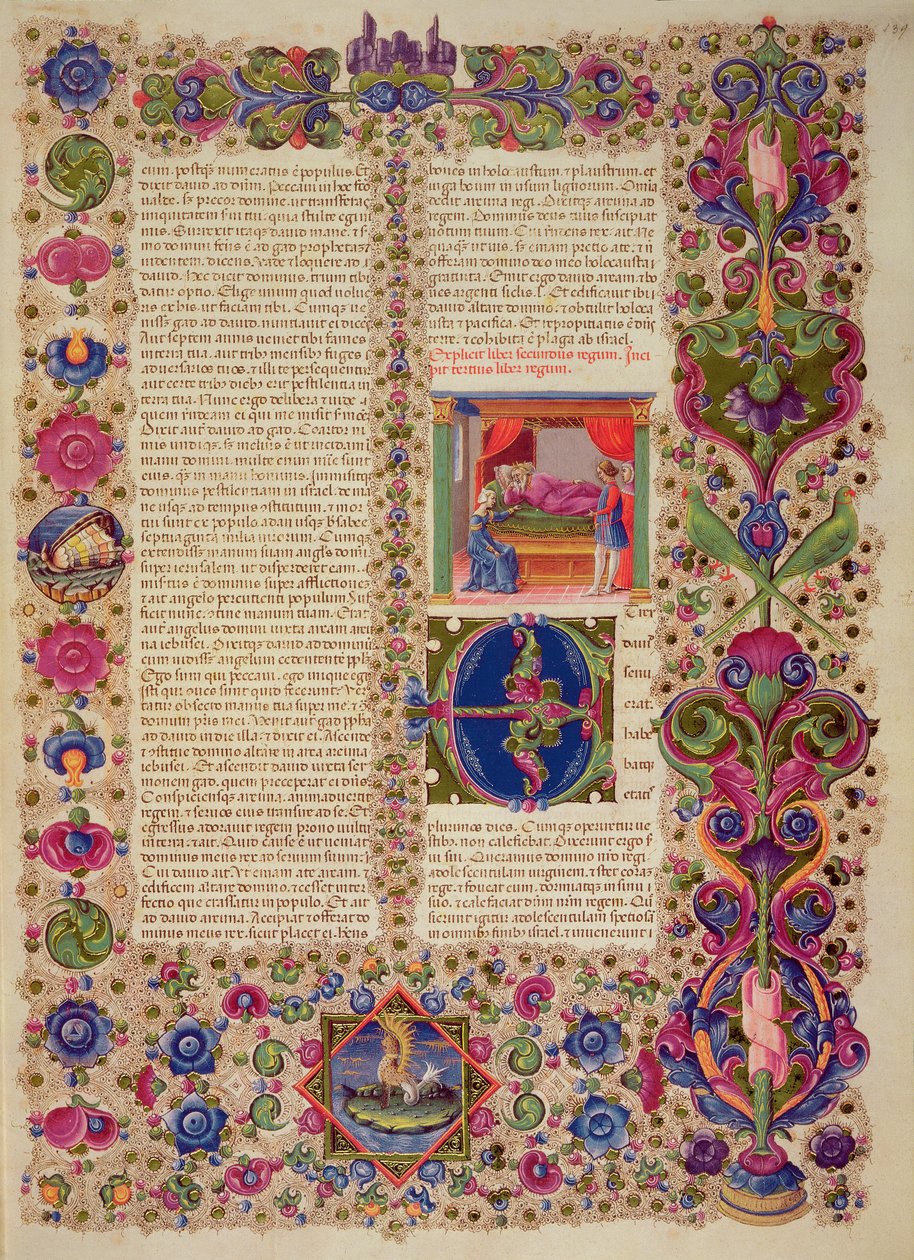 eum. postq̃ numeratus ẽ populus. Et
dixit david ad dñm. Peccavi in hoc fcõ
valde. sʒ precor domine. ut transferas
iniquitatem servi tui. quia stulte egi ni
mis. Surrexit itaq̃ david mane. ⁊ s
mo domini fcũs ẽ ad gad prophetaʒ
videntem. dicens. Vade ⁊ loquere ad
david. Hec dicit dominus. trium tibi
datur optio. Elige unum quod volue
ris ex his. ut faciam tibi. Cumq̃ ve
nissʒ gad ad david. nuntiavit ei dicẽs
Aut septem annis veniet tibi fames
in terra tua. aut tribꝫ mensibꝫ fuges
adversarios tuos. ⁊ illi te persequentur
aut certe tribꝫ diebꝫ erit pestilentia in
terra tua. Nunc ergo delibera ⁊ vide. a
quem rñdeam ei qui me misit smõce
Dixit aut̃ david ad gad. Coartor ni
mis undiq̃. sʒ melius ẽ ut incidam i
manu domini. multe enim mĩe sunt
eius. q̃ in manu hominis. Inmisitq̃
dominus pestilentiam in israel. de ma
ne usq̃ ad tempus cstitutum. ⁊ mor
tui sunt ex populo. a dan usq̃ b̃sabee
septuaginta milia virorum. Cumq̃
extendissʒ manum suam angl̃s domĩ
super ierusalem. ut disperderet eam.
misertus ẽ dominus super afflictione
⁊ ait angelo percutienti populum. Suf
ficit nunc. ⁊tine manum tuam. Erat
aut̃ angelus domini iuxta aream areu
na iebusei. Dixitq̃ david ad dominum
cum vidissʒ angelum cedentem ppl̃m
Ego sum qui peccavi. ego iniq̃ egi
Isti qui oves sunt quid fecerunt. Ver
tatur obsecro manus tua super me. ⁊
domum pr̃is mei. Venit aut̃ gad ppha
ad david in die illa. ⁊ dixit ei. Ascende
⁊stitue domino altare in area areuna
iebusei. Et ascendit david iuxta ser
monem gad. quem preceperat ei dñs
Conspiciensq̃ areuna. animadvertit
regem. ⁊ servos eius transire ad se. Et
egressus adoravit regem prono vultu
in terra. ⁊ ait. Quid cause ẽ ut veniat
dominus meus rex ad servum suum.
Cui david ait. Ut emam a te aream. ⁊
edificem altare domino. ⁊ cesset inter
fectio que crassatur in populo. Et ait
ad david areuna. Accipiat ⁊ offerat do
minus meus rex. sicut placet ei. hẽns
boves in holocaustum. ⁊ plaustrum. et
iuga boum in usum lignorum. Omia
dedit areuna regi. Dixitq̃ areuna ad
regem. Dominus deus tuus suscipiat
votum tuum. Cui rñdens rex ait. Ne
quaq̃ ut vis. sʒ emam precio a te. ⁊ ñ
offeram domino deo meo holocausta
gratuita. Emit ergo david aream. ⁊ bo
ves argenti siclis .l. Et edificavit ibi
david altare domino. ⁊ obtulit holoca
usta ⁊ pacifica. Et repropitiatus ẽ dñs
terre. ⁊ cohibita ẽ plaga ab israel.
Explicit liber secundus regum. Inci
pit tertius liber regum.
E
T rex
david
senu
erat.
habe
batq̃
etatis
plurimos dies. Cumq̃ operiretur ve
stibꝫ. non calefiebat. Dixerunt ergo s̃
vi sui. Queramus domino nr̃o regi
adolescentulam virginem. ⁊ stet coraʒ
rege. ⁊ foveat eum. dormiatq̃ in sinu
suo. ⁊ calefaciat dñm nr̃m regem. Que
sierunt igitur adolescentulam spetiosã
in omnibꝫ finibꝫ israel. ⁊ invenerunt
139